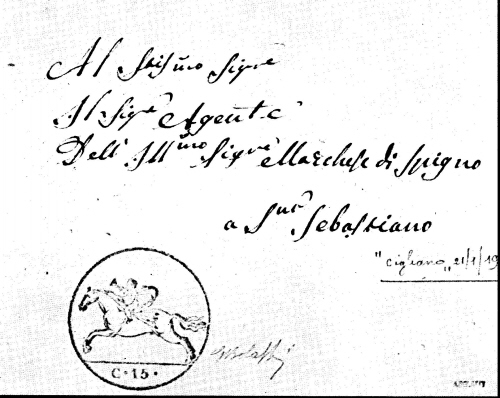 Al Stis.mo Sigre
Il Sigre Agente
Dell' Ill.mo Sigre Marchese di Spigno
a Sn. Sebastiano
"Cigliano„ 21/1/19
C·15·